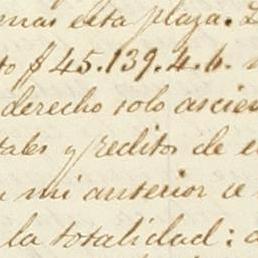 enas esta plaza. L
to $45.139.4.6.
derecho solo ascien
tales y reditos de e
mi anterior
la totalidad: